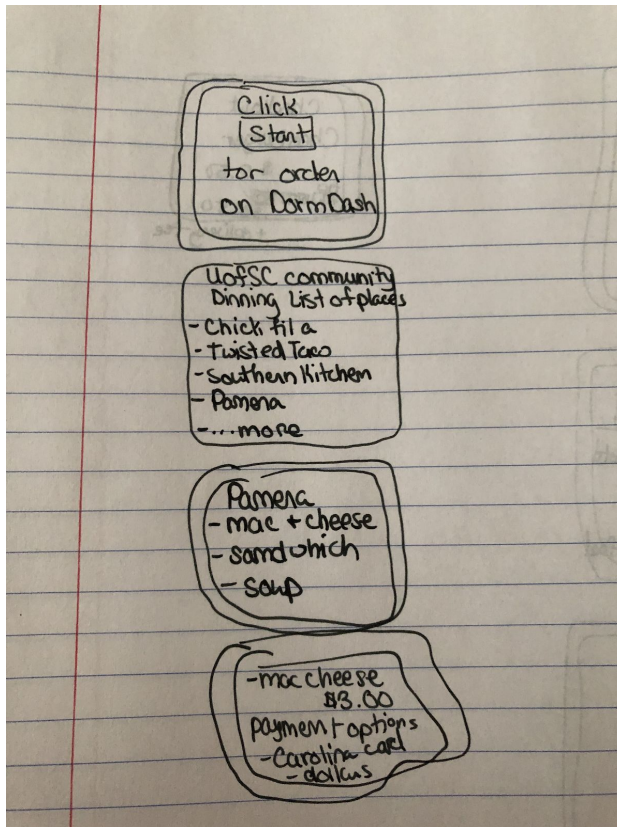 Click
Start
for order
on DormDash
UofSC community
Dinning List of places
- Chick fil a
- Twisted Taco
- Southern Kitchen
- Panera
- ... more
Panera
- mac + cheese
- sandwhich
- soup
- mac cheese
$3.00
payment options
- Carolina card
- dollars